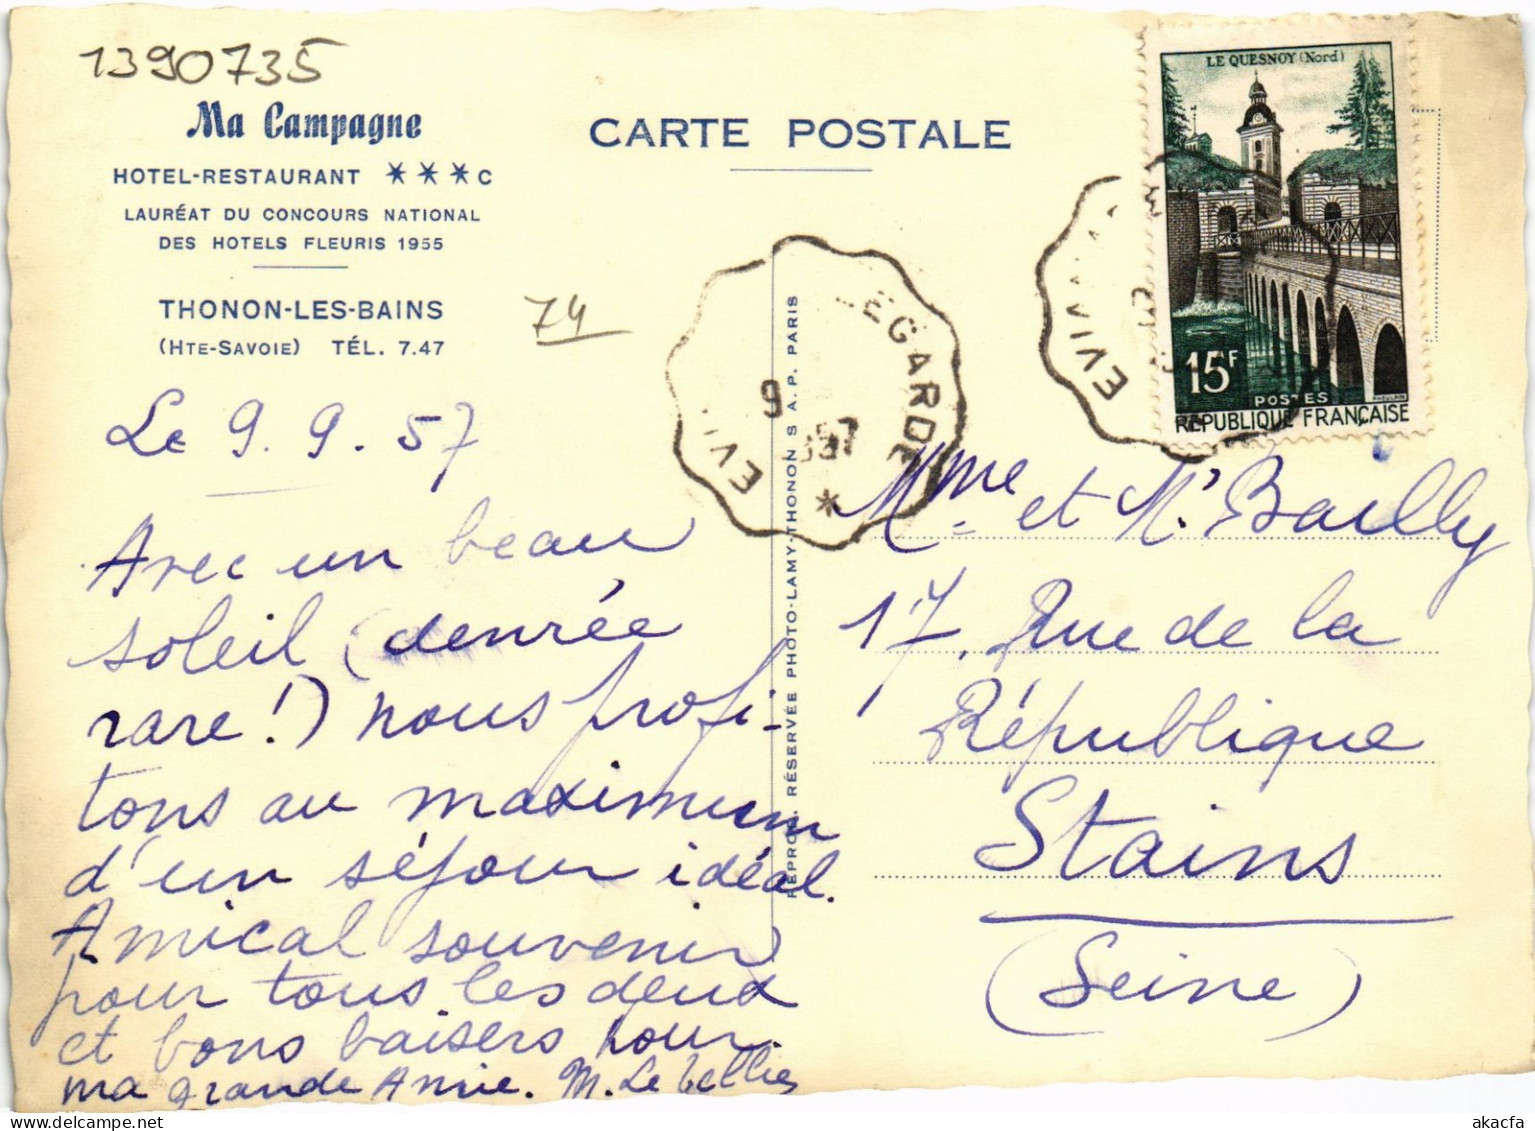 1390735
Ma Campagne
HOTEL-RESTAURANT ***C
LAURÉAT DU CONCOURS NATIONAL
DES HOTELS FLEURIS 1955
THONON-LES-BAINS
(HTE-SAVOIE) TÉL. 7.47
74
Le 9.9.57
Avec un beau
soleil (denrée
rare!) nous profi-
tons au maximum
d'un séjour idéal.
Amical souvenir
pour tous les deux
et bons baisers pour
ma grande Annie.
CARTE POSTALE
REPROD. RÉSERVÉE PHOTO-LAMY-THONON S.A.P. PARIS
EGARDE
9
957
EVI
*
EVI
LE QUESNOY (Nord)
15F
POSTES
REPUBLIQUE FRANÇAISE
Mme et Mr Bailly
17, Rue de la
République
Stains
(Seine)
akacfa.com